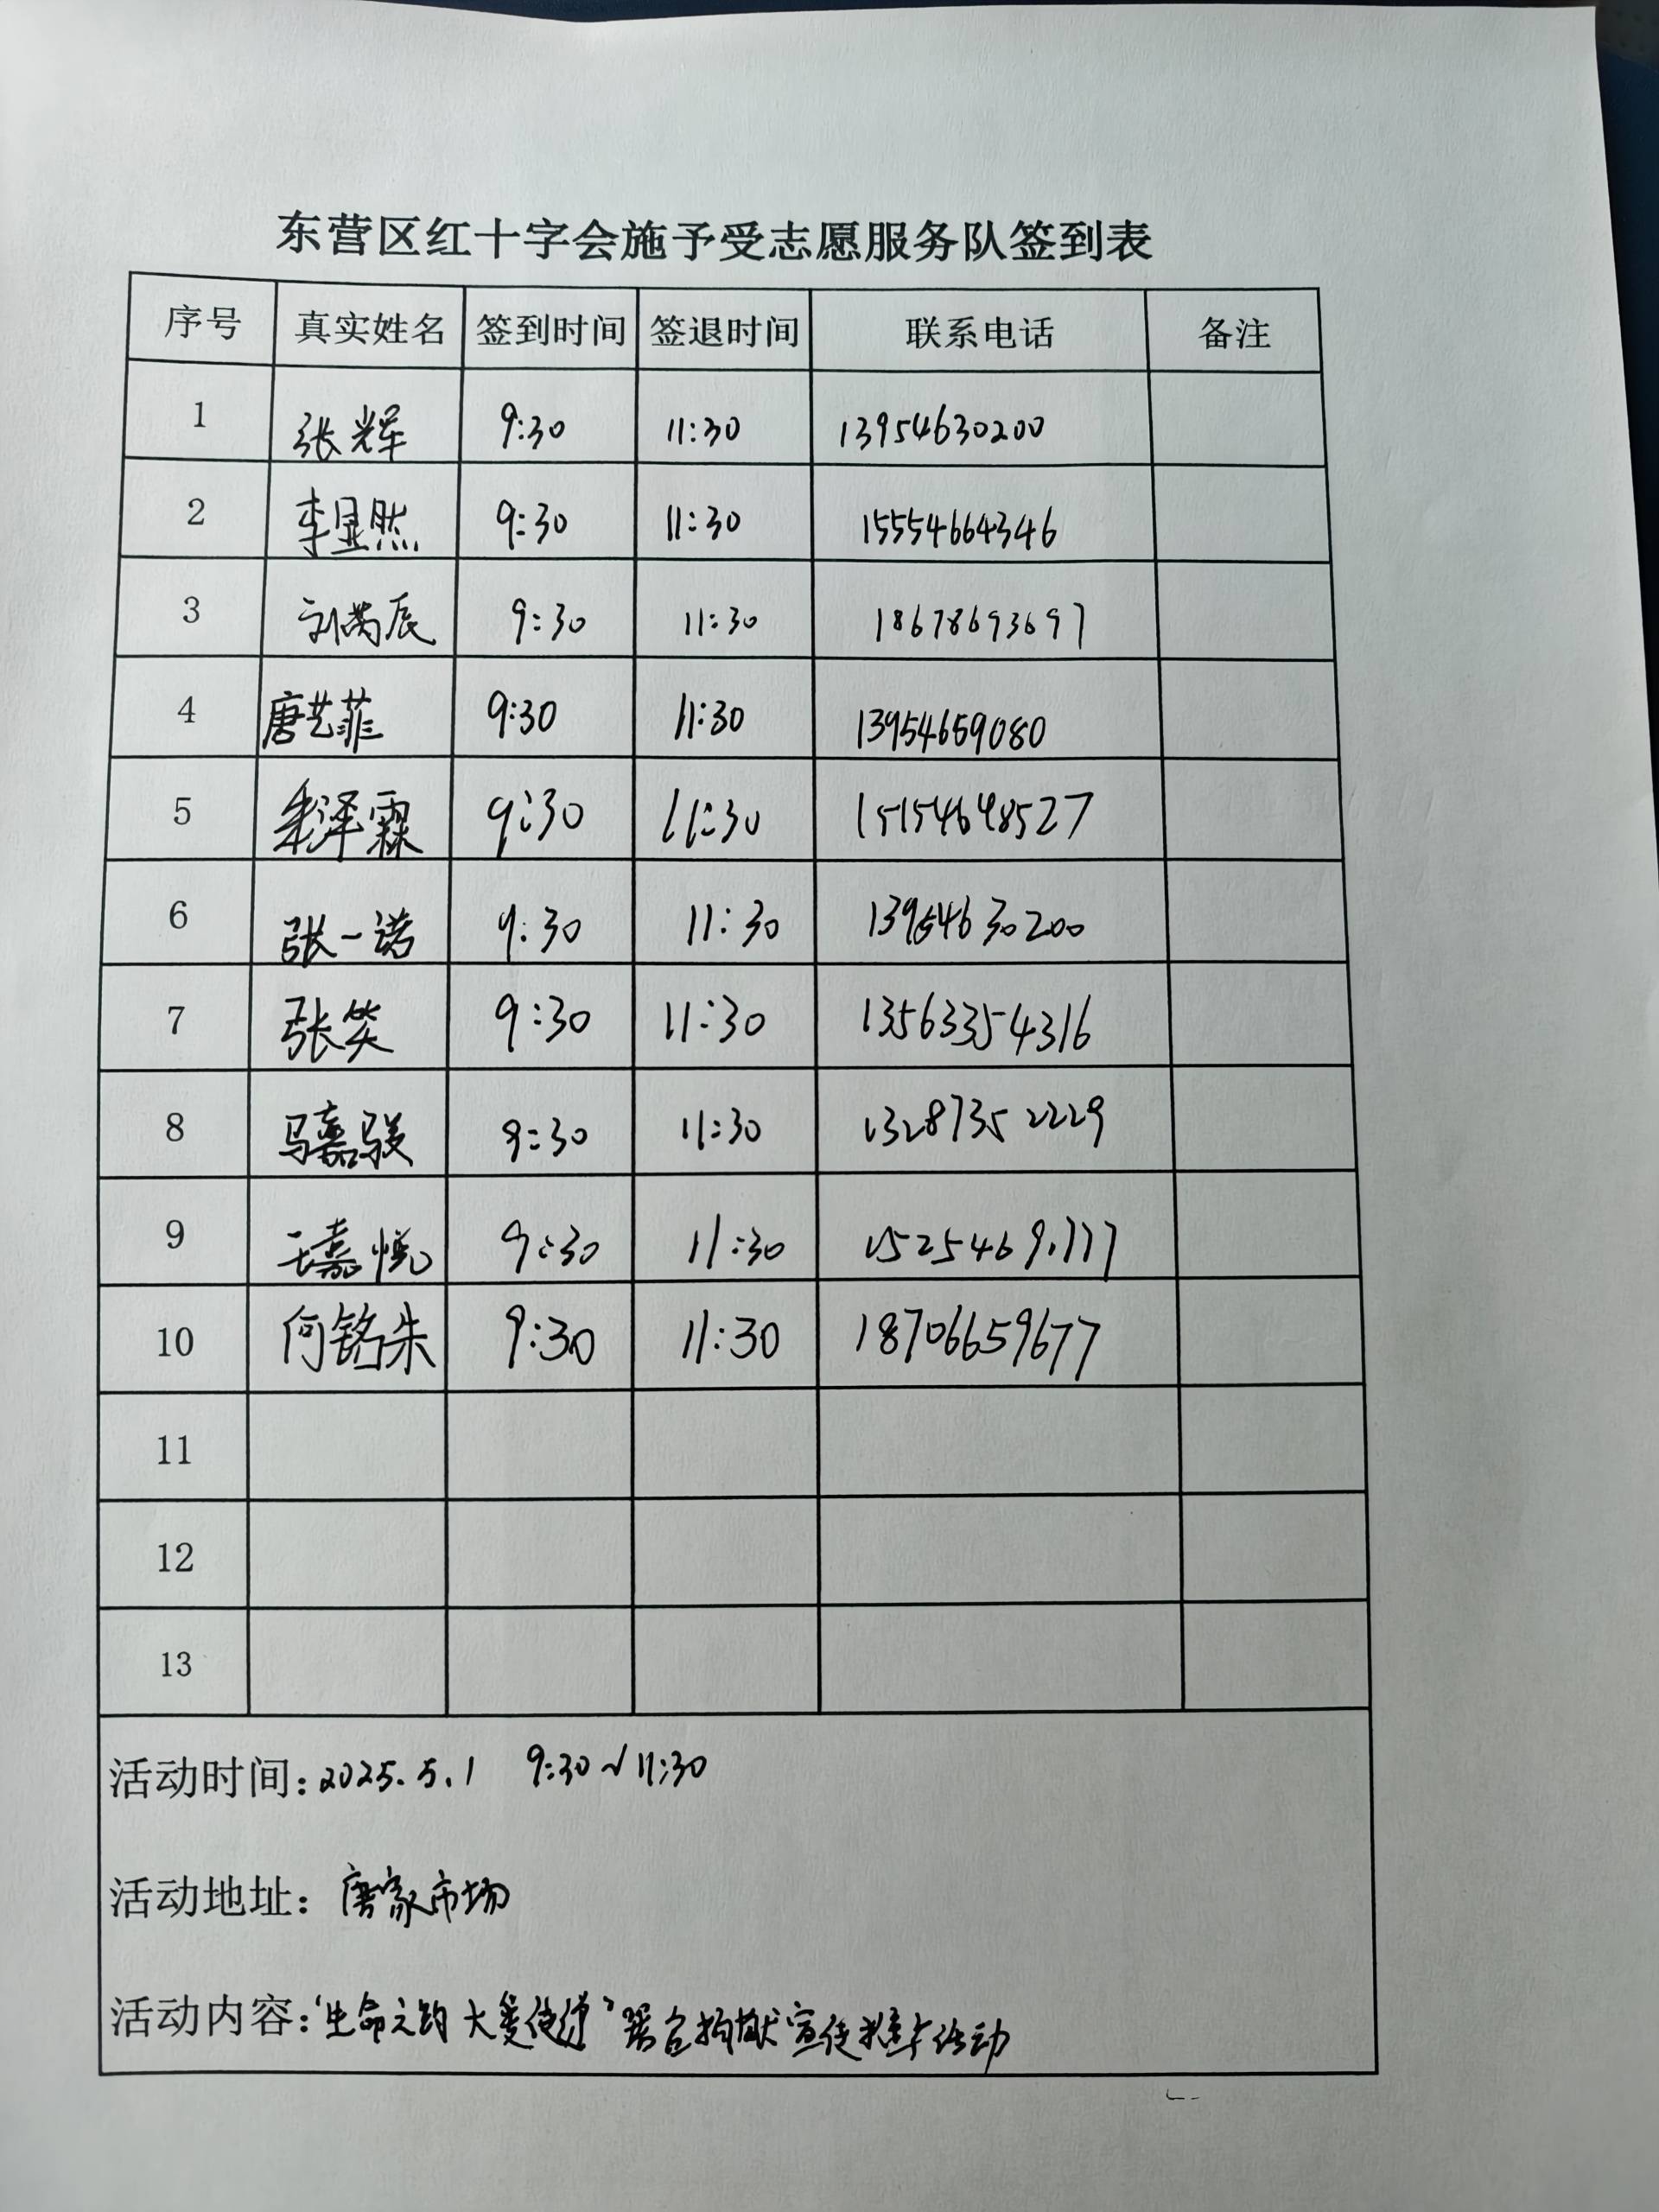 东营区红十字会施予受志愿服务队签到表
序号 真实姓名 签到时间 签退时间 联系电话 备注
1 张辉 9:30 11:30 13954630200
2 李显然 9:30 11:30 15554664346
3 刘芮辰 9:30 11:30 18678693697
4 唐艺菲 9:30 11:30 13954659080
5 泽霖 9:30 11:30 15154648527
6 张一诺 9:30 11:30 13954630200
7 张笑 9:30 11:30 13563354316
8 马嘉骏 9:30 11:30 13287352229
9 王嘉悦 9:30 11:30
10 何铭朱 9:30 11:30 18706659677
11
12
13
活动时间:2025.5.1 9:30~11:30
活动地址:唐家市场
活动内容:“生命之约 大爱传递”器官捐献宣传推广活动